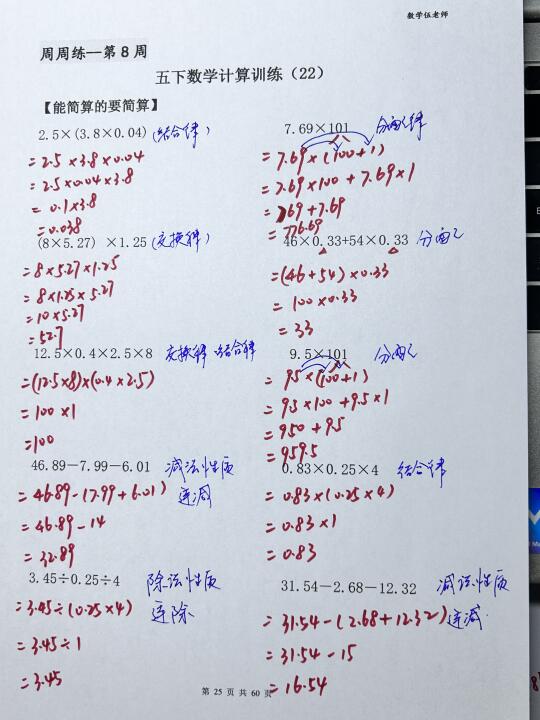 数学伍老师
周周练—第8周
五下数学计算训练（22）
【能简算的要简算】
2.5×(3.8×0.04) (结合律)
=2.5×3.8×0.04
=2.5×0.04×3.8
=0.1×3.8
=0.038
(8×5.27) ×1.25 (交换律)
=8×5.27×1.25
=8×1.25×5.27
=10×5.27
=52.7
12.5×0.4×2.5×8 交换律 结合律
=(12.5×8)×(0.4×2.5)
=100×1
=100
46.89−7.99−6.01 减法性质
=46.89−(7.99+6.01) 连减
=46.89−14
=32.89
3.45÷0.25÷4 除法性质
=3.45÷(0.25×4) 连除
=3.45÷1
=3.45
7.69×101 分配律
=7.69×(100+1)
=7.69×100+7.69×1
=769+7.69
=776.69
46×0.33+54×0.33 分配
=(46+54)×0.33
=100×0.33
=33
9.5×101 分配
=9.5×(100+1)
=9.5×100+9.5×1
=950+9.5
=959.5
0.83×0.25×4 结合律
=0.83×(0.25×4)
=0.83×1
=0.83
31.54−2.68−12.32 减法性质
=31.54−(2.68+12.32) 连减
=31.54−15
=16.54
第 25 页 共 60 页